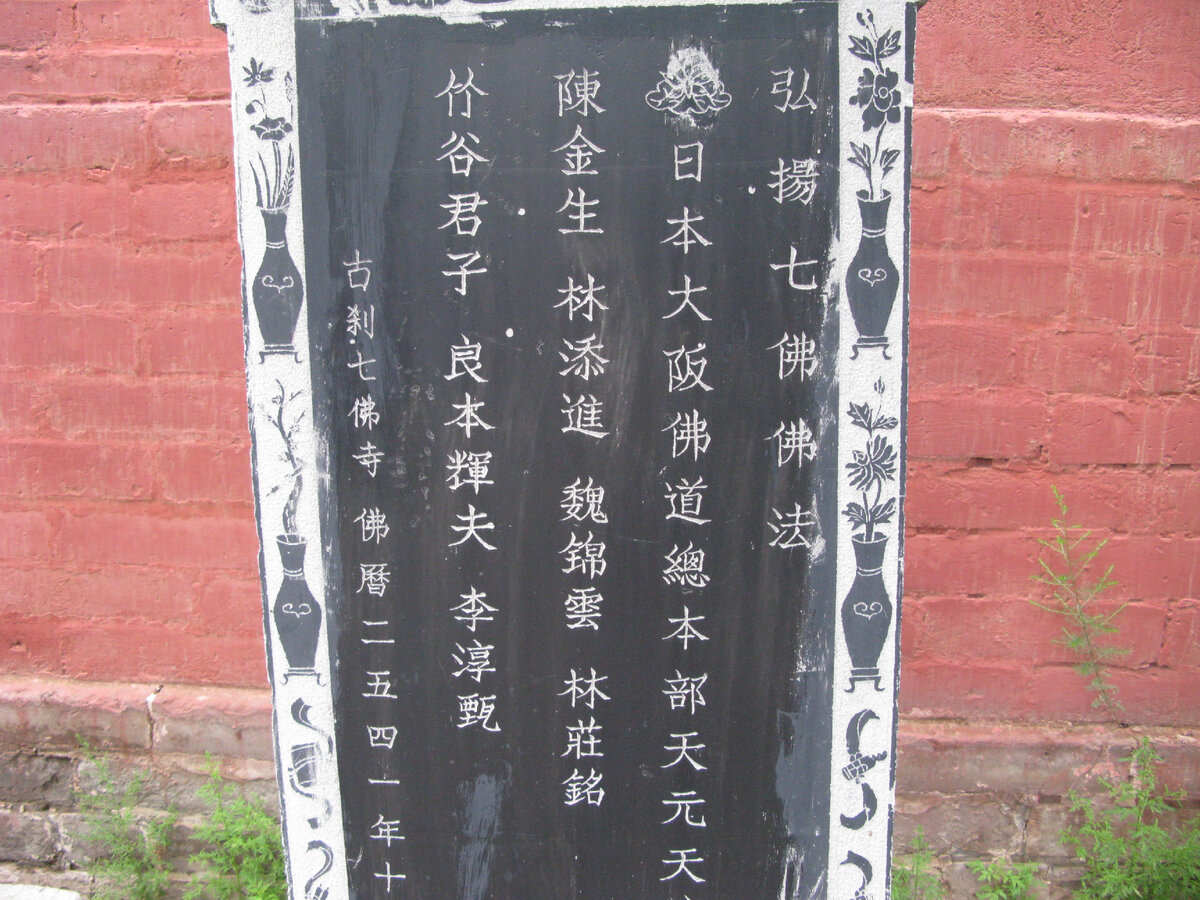 弘揚七佛佛法
日本大阪佛道總本部天元天
陳金生 林添進 魏錦雲 林莊銘
竹谷君子 良本輝夫 李淳甄
古刹七佛寺 佛曆二五四一年十